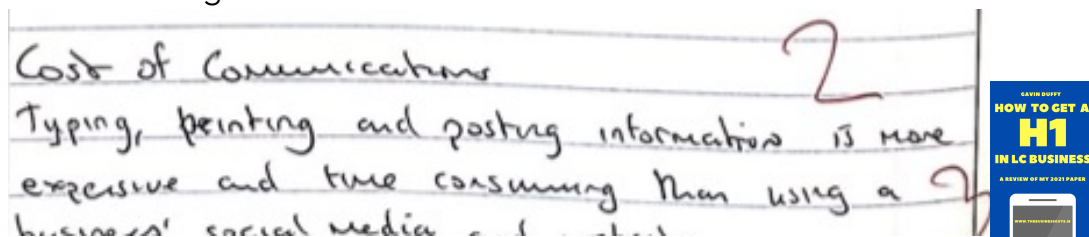 Cost of Communications
2
Typing, printing and posting information is more
expensive and time consuming than using a
business' social media and
GAVIN DUFFY
HOW TO GET A
H1
IN LC BUSINESS
A REVIEW OF MY 2021 PAPER